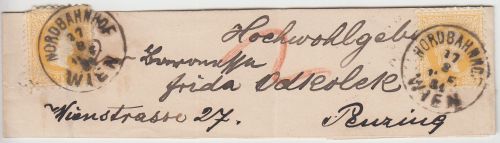 NORDBAHNHOF
27
8
WIEN
NORDBAHNHOF
27
8
WIEN
Hochwohlgeb
Baronesse
Frida Odkolek
Wienstrasse 27. Penzing